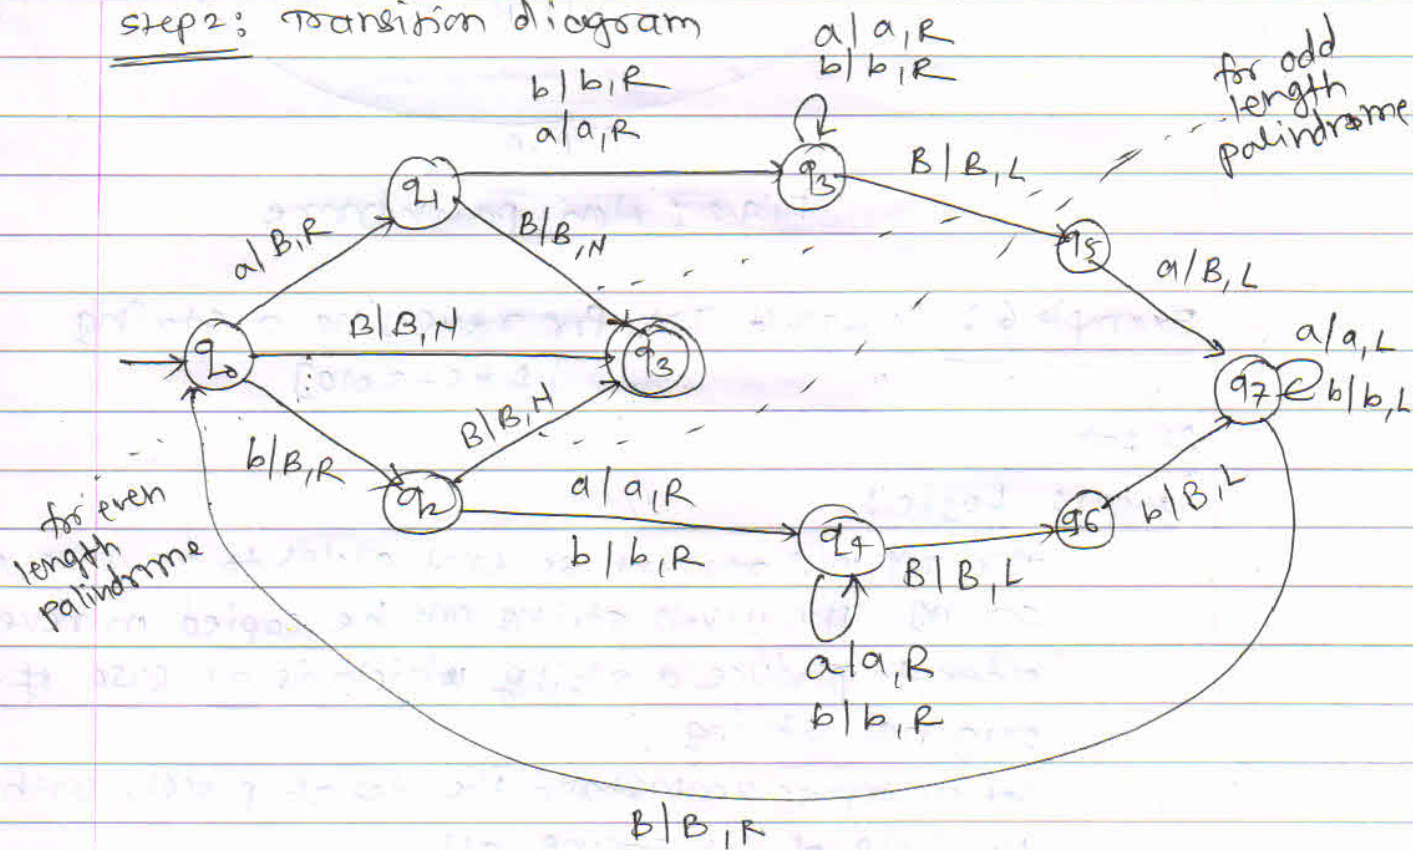 step2: Transition diagram
a/a,R
b/b,R
b/b,R
a/a,R
for odd
length
palindrome
q1
q3
B/B,L
a/B,R
B/B,N
q5
a/B,L
B/B,N
q0
q3
a/a,L
q7
b/b,L
B/B,N
b/B,R
q2
a/a,R
b/b,R
q4
B/B,L
q6
b/B,L
for even
length
palindrome
a/a,R
b/b,R
B/B,R